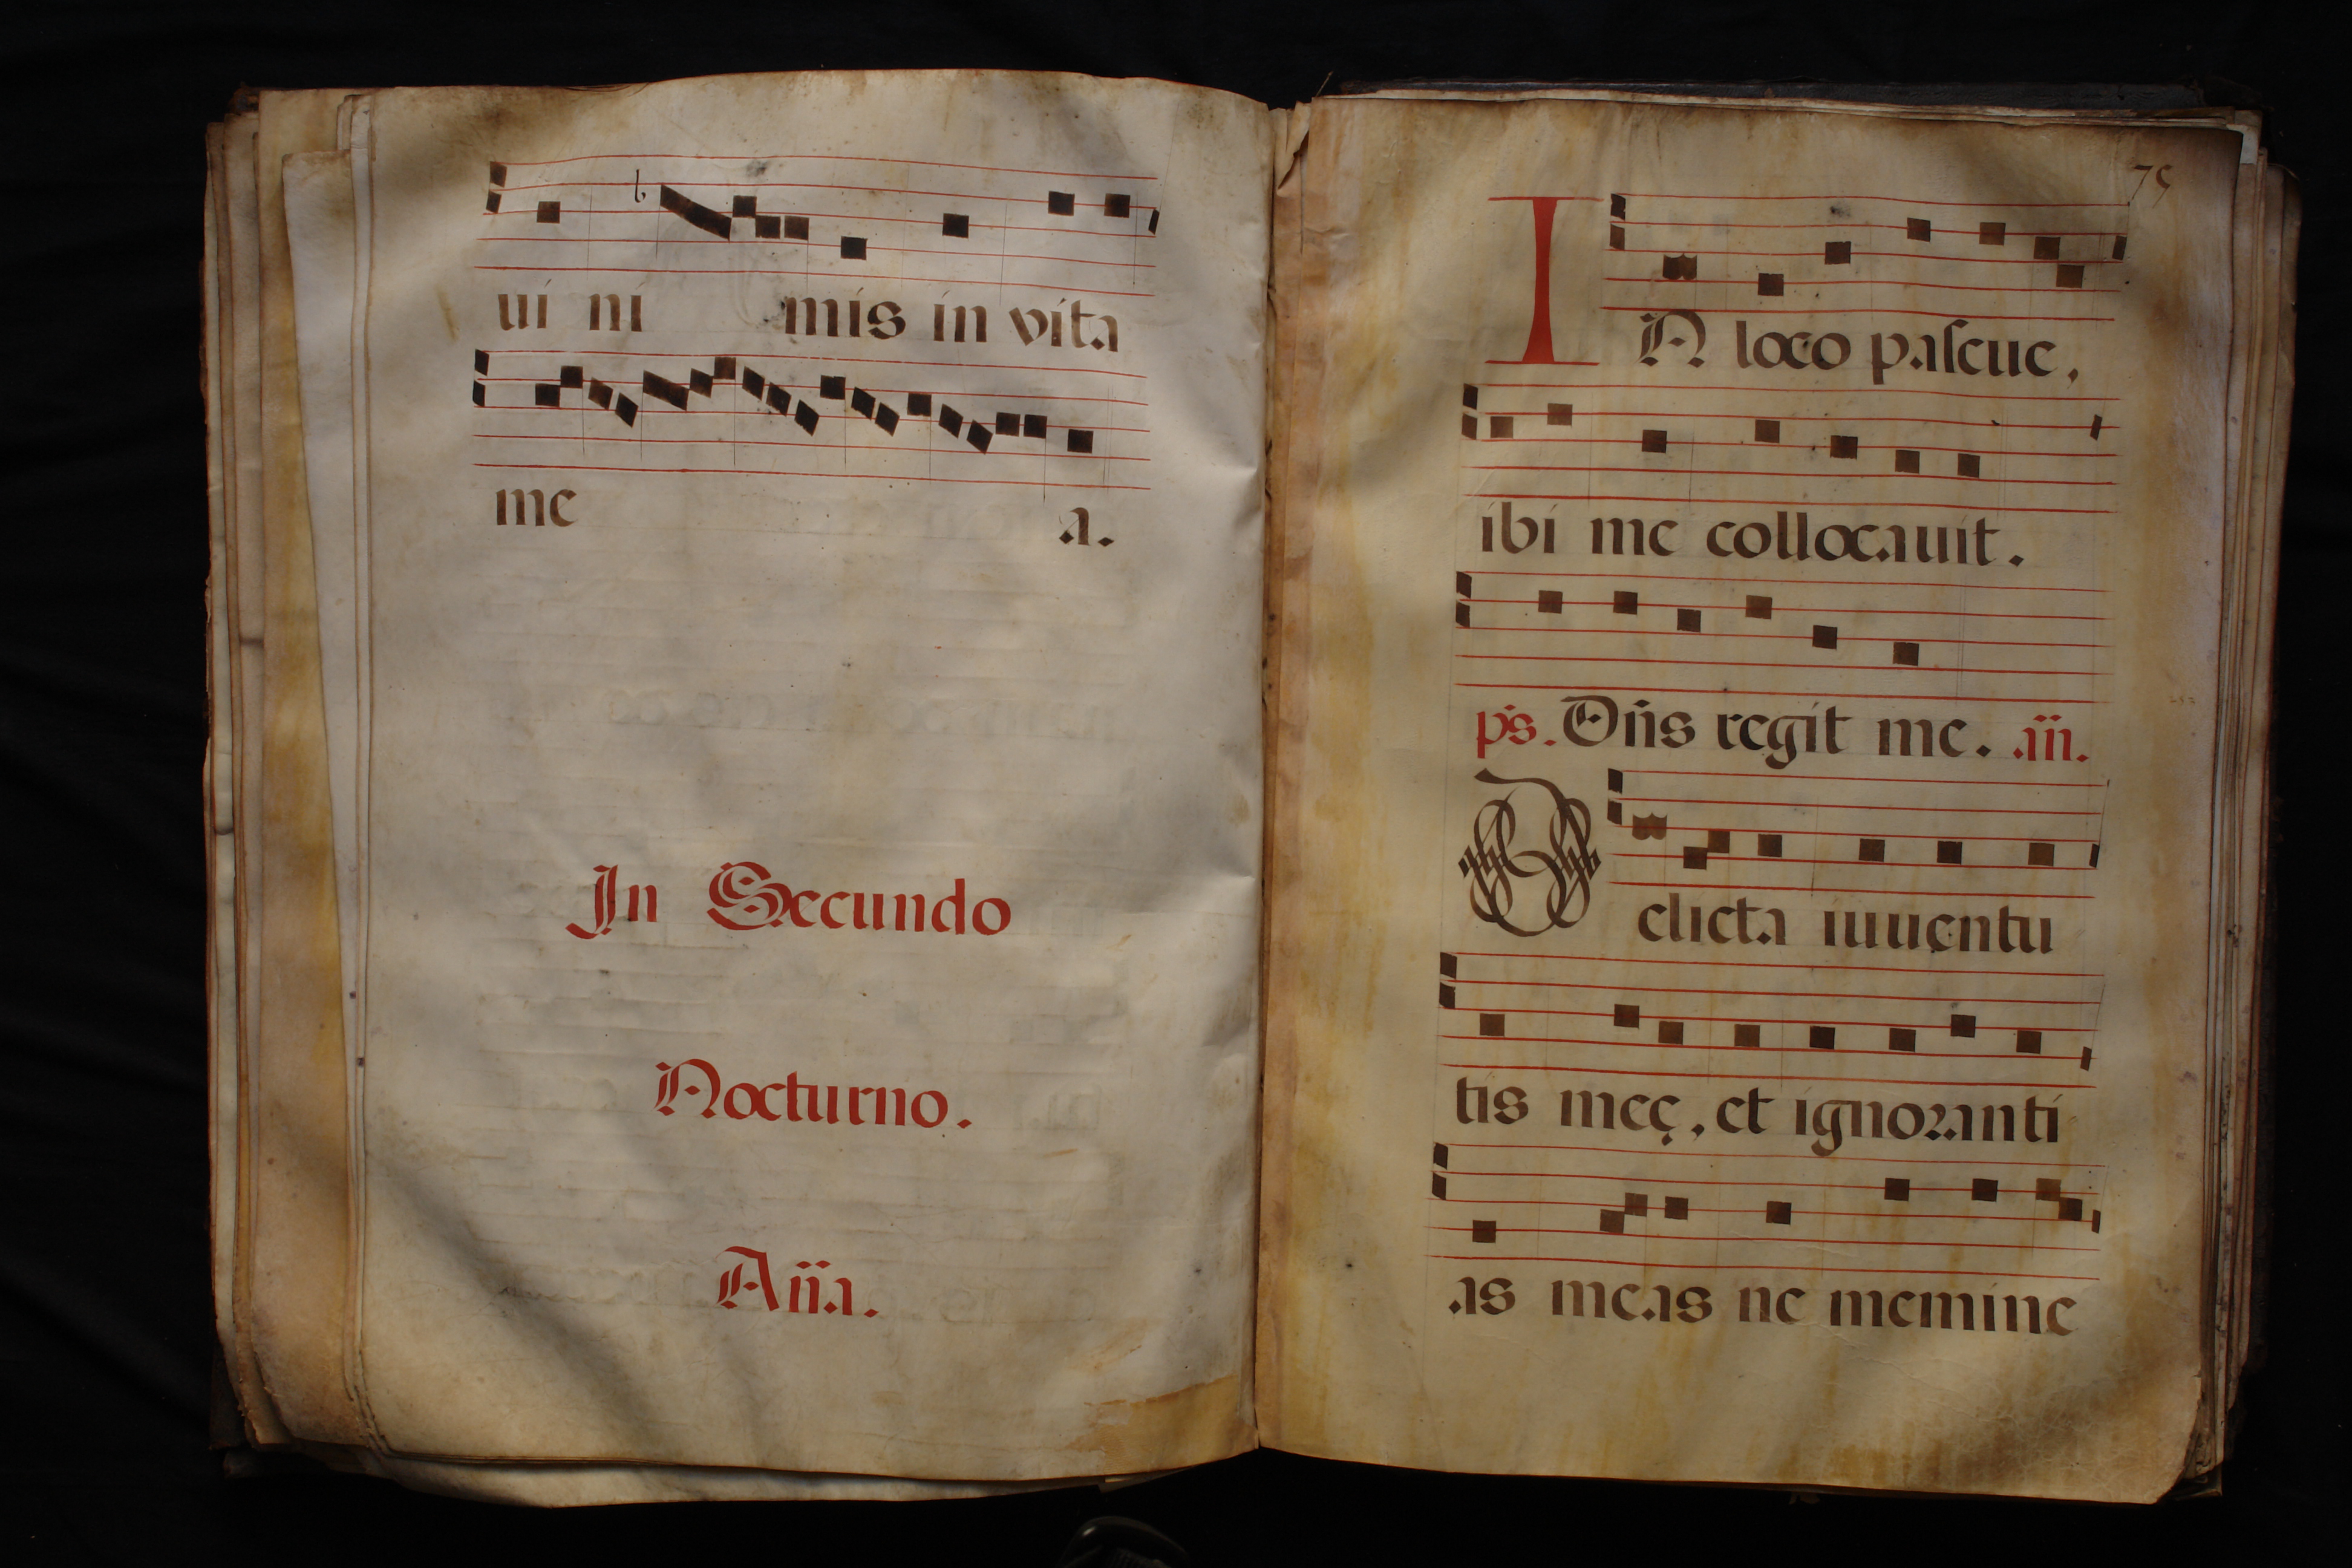 ui ni mis in vita
me a.
In Secundo
Nocturno.
Aña.
75
IN loco pascue,
ibi me collocauit.
ps. Dñs regit me. añ.
Delicta iuuentu
tis meę, et ignoranti
as meas ne memine